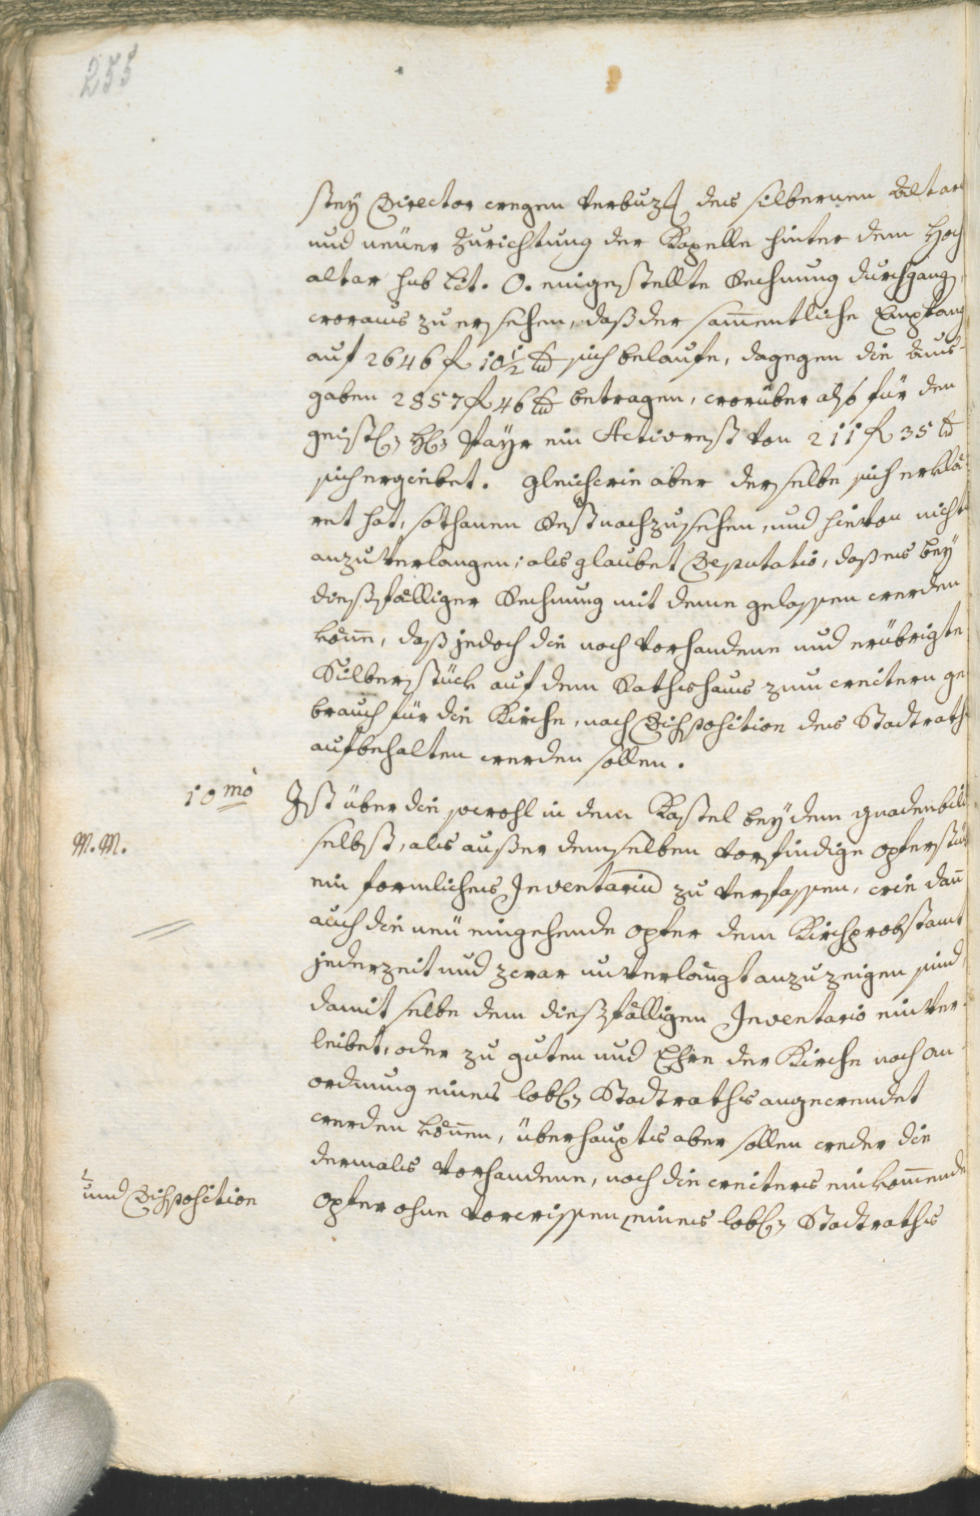 255
stey Director wegen verbuzt des silbernen Altars
und neuer Zurichtung der Kapelle hinter dem Hoch
altar sub Lit. O. eingestellte Rechnung durchgang,
woraus zu ersehen, daß der sam̄entliche Empfang
auf 2646 f 10½ xr sich belaufe, dagegen die Aus-
gaben 2857 f 46 xr betragen, worüber also für den
geistl. H. Payr ein Activrest von 211 f 35 xr
sich ergiebet. Gleichwie aber derselbe sich erklä-
ret hat, sothanen Rest nachzusehen, und hievon nichts
anzuverlangen; als glaubet Deputatio, daß es bey
dießfälliger Rechnung mit deme gelassen werden
könne, daß jedoch die noch vorhandene und erübrigte
Silberstück auf dem Rathshaus zum weitern ge
brauch für die Kirche, nach Disposition des Stadtraths
aufbehalten werden sollen.
10mò Ist über die sowohl in dem Kastel bey dem gnadenbild
M. M.
selbst, als außer demselben vorfindige opferstück
ein formliches Inventariu zu verfassen, wie dan̄
auch die neü eingehende opfer dem Kirchprobstamt
jederzeit und zwar unverlängt anzuzeigen sind,
damit selbe dem dießfälligen Inventario einver-
leibet, oder zu guten und Ehre der Kirche nach An-
ordnung eines lobl. Stadtraths angewendet
werden kön̄en, überhaupts aber sollen weder die
dermals vorhandene, noch die weiters einkom̄ende
und Disposition
opfer ohne vorwissen eines lobl. Stadtraths